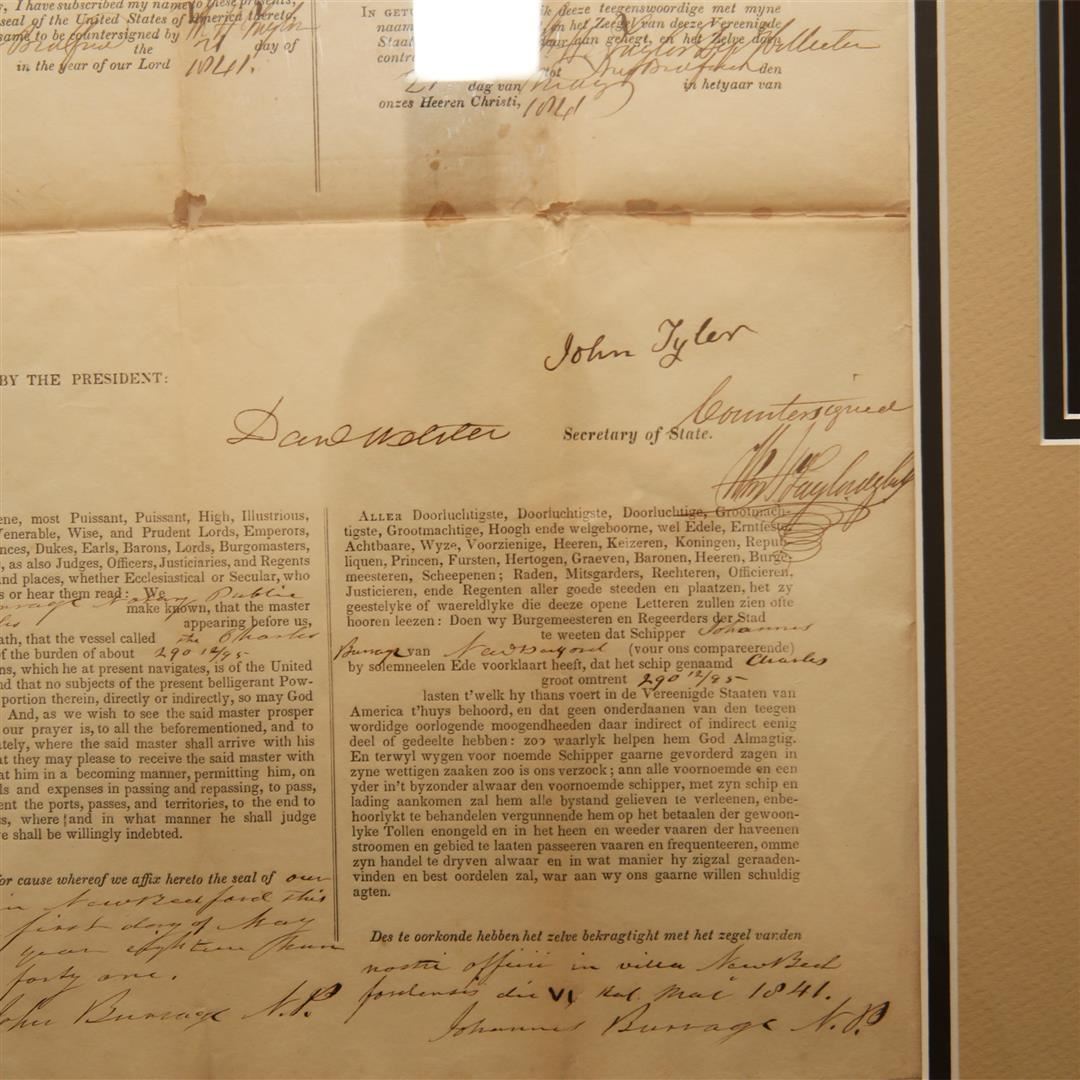 I have subscribed my name to these presents,
seal of the United States of America thereto,
same to be countersigned by
the 21 day of
in the year of our Lord 1841.
IN GETU ik deeze teegenswoordige met myne
naam en het Zeegel van deeze Vereenigde
Staat aan gehegt, en het Zelve doen
contra
tot New Bedford den
21 dag van May in hetyaar van
onzes Heeren Christi, 1841
John Tyler
BY THE PRESIDENT:
Danl Webster Secretary of State.
Countersigned
ene, most Puissant, Puissant, High, Illustrious,
Venerable, Wise, and Prudent Lords, Emperors,
nces, Dukes, Earls, Barons, Lords, Burgomasters,
, as also Judges, Officers, Justiciaries, and Regents
and places, whether Ecclesiastical or Secular, who
s or hear them read: We
Burrage Notary Public
make known, that the master
appearing before us,
ath, that the vessel called the Charles
of the burden of about 290 12/95
ns, which he at present navigates, is of the United
nd that no subjects of the present belligerant Pow-
portion therein, directly or indirectly, so may God
And, as we wish to see the said master prosper
our prayer is, to all the beforementioned, and to
ately, where the said master shall arrive with his
at they may please to receive the said master with
at him in a becoming manner, permitting him, on
ls and expenses in passing and repassing, to pass,
ent the ports, passes, and territories, to the end to
s, where and in what manner he shall judge
e shall be willingly indebted.
for cause whereof we affix hereto the seal of our
in New Bedford this
first day of May
year eighteen hun
forty one.
John Burrage N.P.
ALLER Doorluchtigste, Doorluchtigste, Doorluchtige, Grootmach-
tigste, Grootmachtige, Hoogh ende welgeboorne, wel Edele, Erntfeste,
Achtbaare, Wyze, Voorzienige, Heeren, Keizeren, Koningen, Repub-
liquen, Princen, Fursten, Hertogen, Graeven, Baronen, Heeren, Burge-
meesteren, Scheepenen; Raden, Mitsgarders, Rechteren, Officieren,
Justicieren, ende Regenten aller goede steeden en plaatzen, het zy
geestelyke of waereldlyke die deeze opene Letteren zullen zien ofte
hooren leezen: Doen wy Burgemeesteren en Regeerders der Stad
te weeten dat Schipper Johannes
Burrage van New Bedford (voor ons compareerende)
by solemneelen Ede voorklaart heeft, dat het schip genaamd Charles
groot omtrent 290 12/95
lasten t'welk hy thans voert in de Vereenigde Staaten van
America t'huys behoord, en dat geen onderdaanen van den teegen
wordidge oorlogende moogendheeden daar indirect of indirect eenig
deel of gedeelte hebben: zoo waarlyk helpen hem God Almagtig.
En terwyl wygen voor noemde Schipper gaarne gevorderd zagen in
zyne wettigen zaaken zoo is ons verzock; ann alle voornoemde en een
yder in't byzonder alwaar den voornoemde schipper, met zyn schip en
lading aankomen zal hem alle bystand gelieven te verleenen, enbe-
hoorlykt te behandelen vergunnende hem op het betaalen der gewoon-
lyke Tollen enongeld en in het heen en weeder vaaren der haveenen
stroomen en gebied te laaten passeeren vaaren en frequenteeren, omme
zyn handel te dryven alwaar en in wat manier hy zigzal geraaden-
vinden en best oordelen zal, war aan wy ons gaarne willen schuldig
agten.
Des te oorkonde hebben het zelve bekragtight met het zegel van den
nostri officii in villa New Bed
fordensis die VI Kal. Mai 1841.
Johannes Burrage N.P.